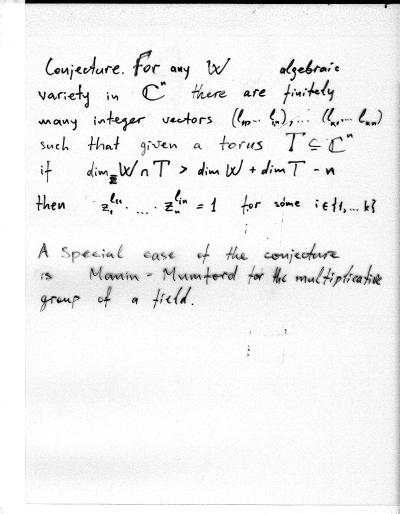 Conjecture. For any W algebraic
variety in ℂⁿ there are finitely
many integer vectors (l₁₁,... l₁ₙ),... (lₖ₁,... lₖₙ)
such that given a torus T ⊆ ℂⁿ
if dim W ∩ T > dim W + dim T - n
then z₁^{lᵢ₁} · ... · zₙ^{lᵢₙ} = 1 for some i ∈ {1,... k}
A special case of the conjecture
is Manin - Mumford for the multiplicative
group of a field.